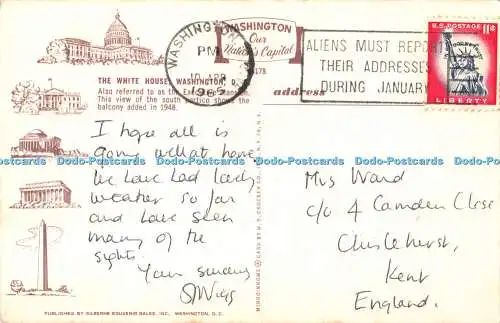 WASHINGTON, D.C.
PM
APR
1965
WASHINGTON
Our
Nation's Capital
ALIENS MUST REPORT
THEIR ADDRESSES
DURING JANUARY
U.S. POSTAGE 11¢
LIBERTY
THE WHITE HOUSE, WASHINGTON, D.C.
Also referred to as the Executive Mansion.
This view of the south portico shows the
balcony added in 1948.
address
I hope all is
going well at home.
We have had lovely
weather so far
and have seen
many of the
sights.
Your sincerely
Mrs Ward
c/o 4 Camden Close
Chislehurst,
Kent
England.
Dodo-Postcards Dodo-Postcards Dodo-Postcards Dodo-Postcards Dodo-Postcards
PUBLISHED BY SILBERNE SOUVENIR SALES, INC., WASHINGTON, D.C.